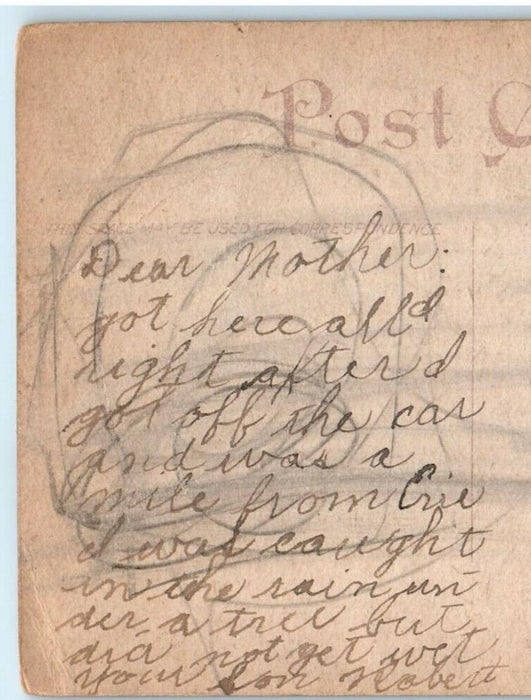 Post C
THIS SPACE MAY BE USED FOR CORRESPONDENCE
Dear Mother:
got here all
right after I
got off the car
and was a
mile from Erie
I was caught
in the rain un
der a tree but
did not get wet
your Son Robert